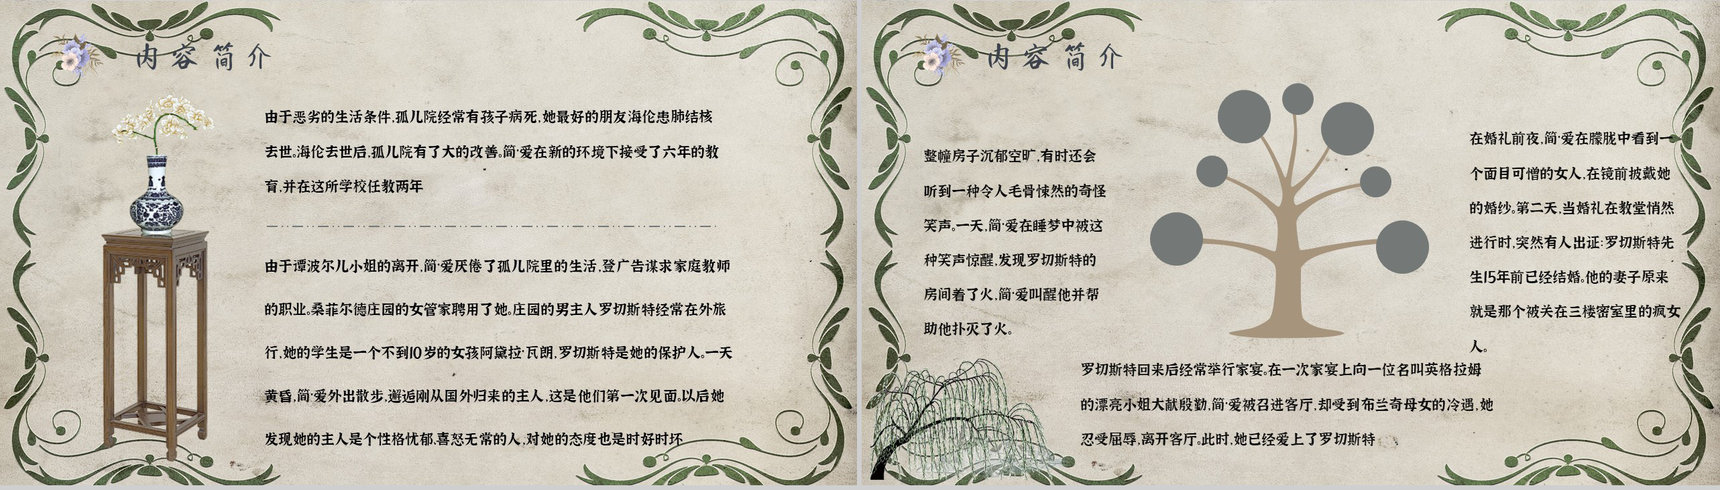 内容简介
由于恶劣的生活条件,孤儿院经常有孩子病死,她最好的朋友海伦患肺结核
去世。海伦去世后,孤儿院有了大的改善。简·爱在新的环境下接受了六年的教
育,并在这所学校任教两年
由于谭波尔儿小姐的离开,简·爱厌倦了孤儿院里的生活,登广告谋求家庭教师
的职业。桑菲尔德庄园的女管家聘用了她。庄园的男主人罗切斯特经常在外旅
行,她的学生是一个不到10岁的女孩阿黛拉·瓦朗,罗切斯特是她的保护人。一天
黄昏,简·爱外出散步,邂逅刚从国外归来的主人,这是他们第一次见面。以后她
发现她的主人是个性格忧郁,喜怒无常的人,对她的态度也是时好时坏
内容简介
整幢房子沉郁空旷,有时还会
听到一种令人毛骨悚然的奇怪
笑声。一天,简·爱在睡梦中被这
种笑声惊醒,发现罗切斯特的
房间着了火,简·爱叫醒他并帮
助他扑灭了火。
在婚礼前夜,简·爱在朦胧中看到一
个面目可憎的女人,在镜前披戴她
的婚纱。第二天,当婚礼在教堂悄然
进行时,突然有人出证:罗切斯特先
生15年前已经结婚。他的妻子原来
就是那个被关在三楼密室里的疯女
人。
罗切斯特回来后经常举行家宴。在一次家宴上向一位名叫英格拉姆
的漂亮小姐大献殷勤,简·爱被召进客厅,却受到布兰奇母女的冷遇,她
忍受屈辱,离开客厅。此时,她已经爱上了罗切斯特